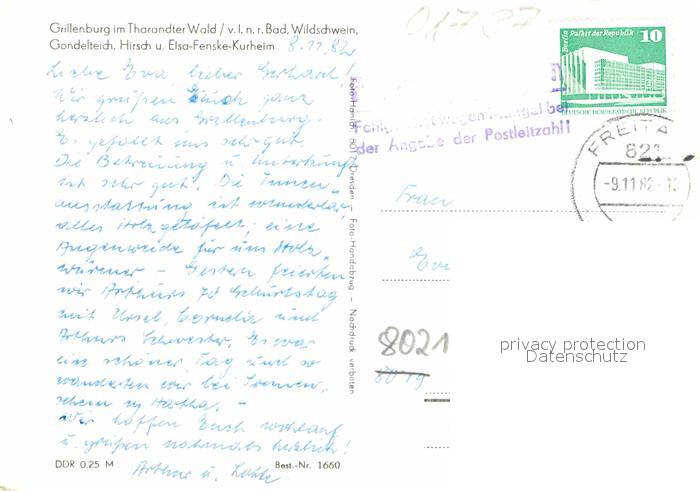 Grillenburg im Tharandter Wald / v. l. n. r. Bad, Wildschwein,
Gondelteich, Hirsch u. Elsa-Fenske-Kurheim
8.11.82
Liebe Eva lieber Gerhard!
Wir grüßen Euch ganz
herzlich aus Grillenburg.
Es gefällt uns sehr gut.
Die Betreuung u. Unterkunft
ist sehr gut. Die Innen-
ausstattung ist wunderbar,
alles Holzgetäfelt; eine
Augenweide für uns Holz-
würmer - Gestern feierten
wir Arthurs 70 Geburtstag
mit Ursel, Cornelia und
Arthurs Schwester. Es war
ein schöner Tag und so
wanderten wir bei Sonnen-
schein n.
Hartha. -
Wir hoffen Euch wohlauf
u. grüßen nochmals herzlich!
Arthur u. Lotte
DDR 0.25 M
Best.-Nr. 1660
Foto-Handabzug - Nachdruck verboten
8017 Dresden
01727
wegen Mangel bei
der Angabe der Postleitzahl!
Berlin Palast der Republik
10
DEUTSCHE DEMOKRATISCHE REPUBLIK
FREITA
821
-9.11.82-
Frau
8021
8019
privacy protection
Datenschutz